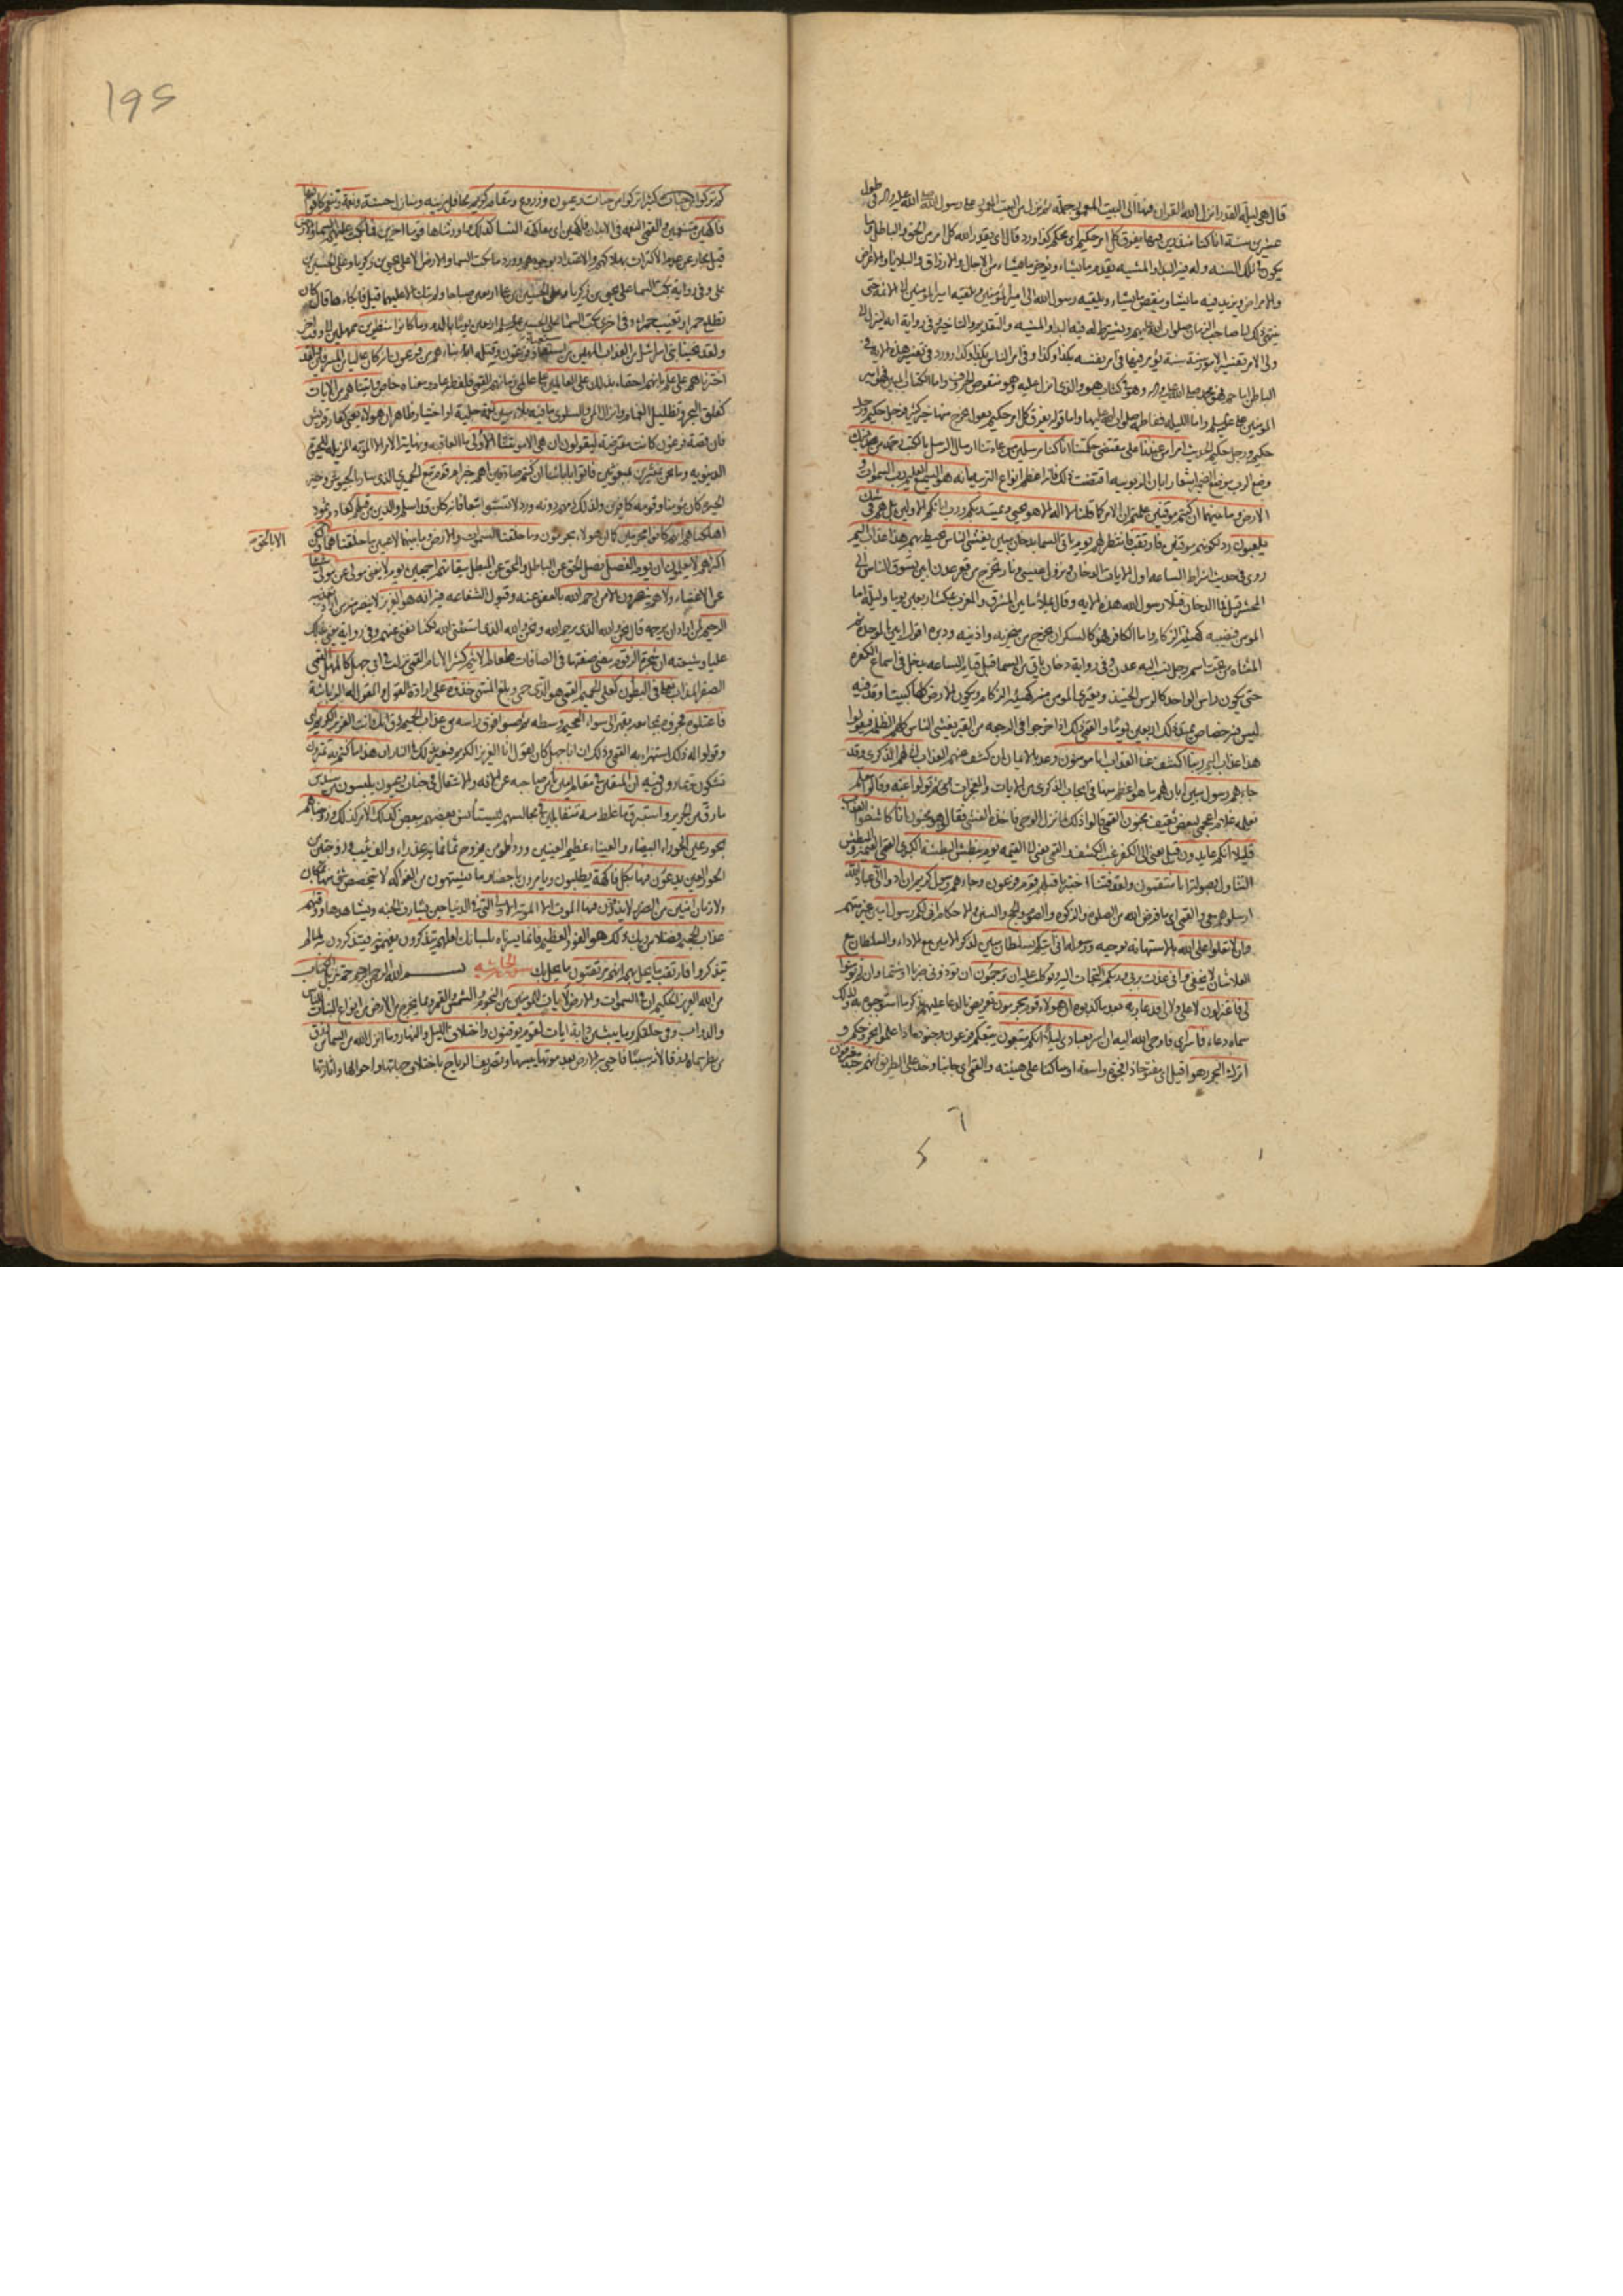 قال هي ليلة القدر انزل الله القران فيها الى البيت المعمور جملة ثم نزل من البيت المعمور على رسول الله صلى الله عليه واله في طول
عشرين سنة انا كنا منذرين فيها يفرق كل امر حكيم اي محكم كذا ورد قال اي يقدر الله كل امر من الحق والباطل وما
يكون في تلك السنه وله فيه البداء والمشيه يقدم ما يشاء ويؤخر ما يشاء من الاجال والارزاق والبلايا والاعراض
والامراض ويزيد فيه ما يشاء وينقص ما يشاء ويلقيه رسول الله الى امير المؤمنين ويلقيه امير المؤمنين الى الائمة حتى
ينتهي ذلك الى صاحب الزمان صلوات الله عليهم ويشترط له فيه البداء والمشيه والتقديم والتاخير وفي رواية انه لينزل الى
ولي الامر تفسير الامور سنة سنة يؤمر فيها في امر نفسه بكذا وكذا وفي امر الناس بكذا وكذا وورد في تفسير هذه الاية في
الباطن اما حم فهو محمد صلى الله عليه واله وهو في كتاب هود الذي انزل عليه وهو منقوص الحروف واما الكتاب المبين فهو امير
المؤمنين علي عليه السلم واما الليله ففاطمه صلوات الله عليها واما قوله يفرق كل امر حكيم يقول يخرج منها خير كثير فرجل حكيم ورجل
حكيم ورجل حكيم الحديث امرا من عندنا على مقتضى حكمتنا انا كنا مرسلين من عادتنا ارسال الرسل بالكتب رحمة من ربك
وضع الرب موضع الضمير اشعارا بان الربوبيه اقتضت ذلك فانه اعظم انواع التربيه انه هو السميع العليم رب السموات و
الارض وما بينهما ان كنتم موقنين علمتم ان الامر كما قلنا لا اله الا هو يحيي ويميت ربكم ورب ابائكم الاولين بل هم في شك
يلعبون رد لكونهم موقنين فارتقب فانتظر لهم يوم تاتي السماء بدخان مبين يغشى الناس يحيط بهم هذا عذاب اليم
روي في حديث اشراط الساعه اول الايات الدخان ونزول عيسى ونار تخرج من قعر عدن ابين تسوق الناس الى
المحشر قيل فما الدخان فتلا رسول الله هذه الايه وقال يملأ ما بين المشرق والمغرب يمكث اربعين يوما وليلة اما
المومن فيصيبه كهيئة الزكام واما الكافر فهو كالسكران يخرج من منخريه واذنيه ودبره
حتى يكون راس الواحد كالراس الحنيذ ويعتري المومن منه كهيئة الزكام ويكون الارض كلها كبيت اوقد فيه
ليس فيه خصاص يمتد ذلك اربعين يوما والقمي ذلك اذا خرجوا في الرجعه من القبر يغشى الناس كلهم الظلمة فيقولوا
هذا عذاب اليم ربنا اكشف عنا العذاب انا مومنون وعد بالايمان ان كشف عنهم العذاب انى لهم الذكرى وقد
جاءهم رسول مبين ابان لهم ما هو اعظم منها في ايجاب الذكرى من الايات والمعجزات ثم تولوا عنه وقالوا معلم
يعلمه غلام اعجمي لبعض ثقيف مجنون القمي قالوا ذلك لما نزل الوحي فاخذه الغشي فقالوا هو مجنون انا كاشفوا العذاب
قليلا انكم عايدون قيل يعني الى الكفر غب الكشف القمي يعني الى القيمه يوم نبطش البطشة الكبرى القمي القيمه والبطش
التناول بصولة انا منتقمون ولقد فتنا اختبرنا قبلهم قوم فرعون وجاءهم رسول كريم ان ادوا الي عباد الله
ارسلوهم معي والقمي اي ما فرض الله من الصلوة والزكوة والصوم والحج والسنن والاحكام اني لكم رسول امين غير متهم
وان لا تعلوا على الله بالاستهانه بوحيه ورسوله اني اتيكم بسلطان مبين لذكر الامين مع الاداء والسلطان مع
العلا شان لا يخفى واني عذت بربي وربكم التجات اليه وتوكلت عليه ان ترجمون ان تؤذوني ضربا او شتما وان لم تومنوا
لي فاعتزلون لا علي ولا لي فدعا ربه بعد ما كذبوه ان هؤلاء قوم مجرمون تعريض بالدعاء عليهم بذكر ما استوجبوه به ولذلك
سماه دعاء فاسر اي فاوحى الله اليه ان اسر بعبادي ليلا انكم متبعون يتبعكم فرعون وجنوده اذا علموا بخروجكم و
اترك البحر رهوا قيل اي مفتوحا ذا فجوة واسعة او ساكنا على هيئته والقمي اي جانبا وخذ على الطريق انهم جند مغرقون
١٩٤
كم تركوا من جنات كثيرا تركوا من جنات وعيون وزروع ومقام كريم محافل مزينه ومنازل حسنة ونعمة وتنعم كانوا فيها
فاكهين متنعمين والقمي النعمه في الابدان فاكهين اي مفاكهة النساء كذلك واورثناها قوما اخرين فما بكت عليهم السماء والارض
قيل مجاز عن عدم الاكتراث بهلاكهم والاعتداد بوجودهم وورد ما بكت السماء والارض الا على يحيى بن زكريا وعلى الحسين بن
علي وفي رواية بكت السماء على يحيى بن زكريا وعلى الحسين بن علي اربعين صباحا ولم تبك الا عليهما قيل فما بكاءها قال كان
تطلع حمراء وتغيب حمراء وفي اخرى بكت السماء على الحسين عليه السلم اربعين يوما بالدم وما كانوا منظرين ممهلين الى وقت اخر
ولقد نجينا بني اسرائيل من العذاب المهين من فرعون وقتله ابناءهم من فرعون انه كان عاليا من المسرفين ولقد
اخترناهم على علم بانهم احقاء بذلك على العالمين على عالمي زمانهم القمي فلفظه عام ومعناه خاص واتيناهم من الايات
كفلق البحر وتظليل الغمام وانزال المن والسلوى ما فيه بلاء مبين نعمة جلية او اختبار ظاهر ان هؤلاء يعني كفار قريش
فان قصة فرعون كانت معترضه ليقولون ان هي الا موتتنا الاولى ما العاقبه ونهاية الامر الا الموته المزيله للحيوة
الدنيويه وما نحن بمنشرين بمبعوثين فاتوا بابائنا ان كنتم صادقين اهم خير ام قوم تبع الحميري الذي سار بالجيوش وحير
الحيرة كان مؤمنا وقومه كافرين ولذلك ذمهم دونه وورد لا تسبوا تبعا فانه كان قد اسلم والذين من قبلهم كعاد وثمود
اهلكناهم انهم كانوا مجرمين كما ان هؤلاء مجرمون وما خلقنا السموات والارض وما بينهما لاعبين ما خلقناهما ولكن
الا بالحق
اكثرهم لا يعلمون ان يوم الفصل فصل الحق عن الباطل والمحق عن المبطل ميقاتهم اجمعين يوم لا يغني مولى عن مولى شيئا
من الاغناء ولا هم ينصرون الا من رحم الله بالعفو عنه وقبول الشفاعه فيه انه هو العزيز لا ينصر منه من اراد تعذيبه
الرحيم لمن اراد ان يرحمه قال نحن والله الذي يرحم الله ونحن والله الذي استثنى الله لكنا نغني عنهم وفي رواية يعني بذلك
عليا وشيعته ان شجرة الزقوم مضى صفتها في الصافات طعام الاثيم كثير الاثام القمي نزلت في ابي جهل كالمهل القمي
الصفر المذاب يغلي في البطون كغلي الحميم القمي هو الذي حمي وبلغ المنتهى خذوه على ارادة القول والمقول له الزبانية
فاعتلوه فجروه بمجامعه بقهر الى سواء الجحيم وسطه ثم صبوا فوق راسه من عذاب الحميم ذق انك انت العزيز الكريم اي
وقولوا له ذلك استهزاء به القمي وذلك ان ابا جهل كان يقول انا العزيز الكريم فيعير بذلك في النار ان هذا ما كنتم به تمترون
تشكون وتمارون فيه ان المتقين في مقام امين يامن صاحبه عن الافه والانتقال في جنات وعيون يلبسون من سندس
ما رق من الحرير واستبرق ما غلظ منه متقابلين في مجالسهم ليستانس بعضهم ببعض كذلك الامر كذلك وزوجناهم
بحور عين الحوراء البيضاء والعيناء عظيم العينين وورد المومن يزوج ثمانماية عذراء والف ثيب وزوجتين من
الحور العين يدعون فيها بكل فاكهة يطلبون ويامرون باحضار ما يشتهون من الفواكه لا يتخصص شيء منها بمكان
ولا زمان امنين من الضرر لا يذوقون فيها الموت الا الموتة الاولى التي في الدنيا حين يشارف الجنه ويشاهدها ووقيهم
عذاب الجحيم فضلا من ربك ذلك هو الفوز العظيم فانما يسرناه بلسانك لعلهم يتذكرون يفهمونه فيتذكرون به لما لم
يتذكروا فارتقب ما يحل بهم انهم مرتقبون ما يحل بك سورة الجاثيه بسم الله الرحمن الرحيم حم تنزيل الكتاب
من الله العزيز الحكيم ان في السموات والارض لايات للمومنين من النجوم والشمس والقمر وما يخرج من الارض من انواع النبات للناس
والدواب وفي خلقكم وما يبث من دابة ايات لقوم يوقنون واختلاف الليل والنهار وما انزل الله من السماء من رزق
من مطر سماه رزقا لانه سببه فاحيى به الارض بعد موتها يبسها وتصريف الرياح باختلاف جهاتها واحوالها واثارتها